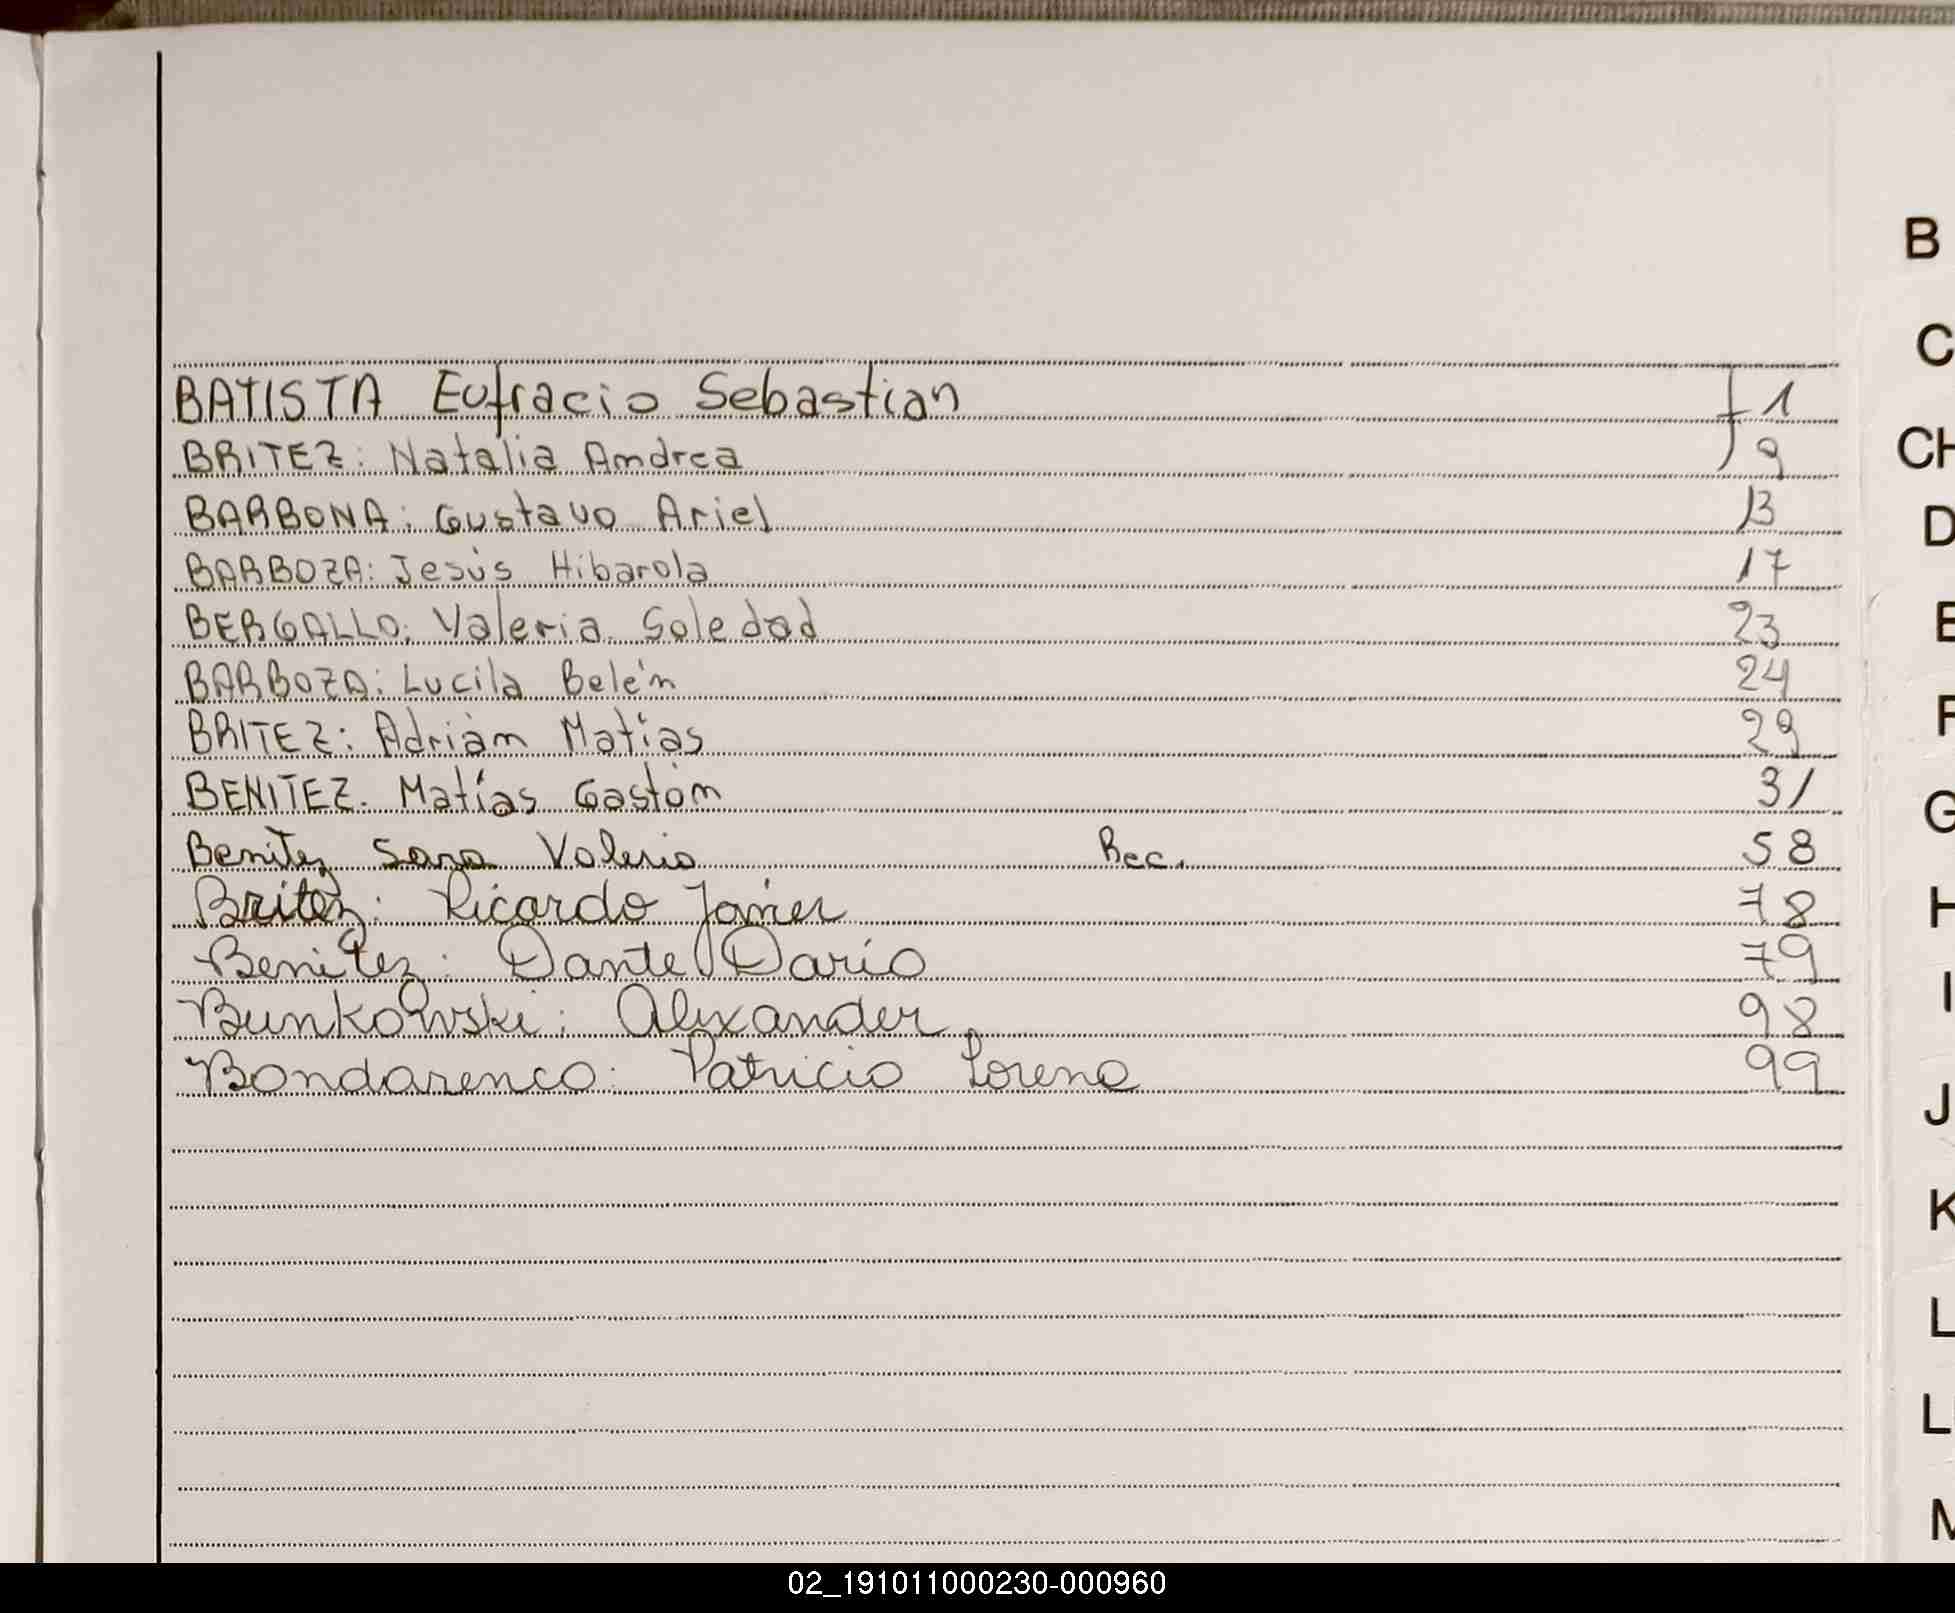 B
C
BATISTA Eufracio Sebastian f 1
CH
BRITEZ: Natalia Andrea 9
BARBONA: Gustavo Ariel 13
D
BARBOZA: Jesús Hibarola 17
BERGALLO: Valeria Soledad 23
E
BARBOZA: Lucila Belén 24
BRITEZ: Adrián Matías 29
F
BENITEZ. Matías Gastón 31
G
Benitez Sara Valeria Rec. 58
Britez: Ricardo Javier 78
H
Benitez: Dante Darío 79
I
Bunkowski: Alexander. 98
Bondarenco: Patricia Lorena 99
J
K
L
LL
M
02_191011000230-000960